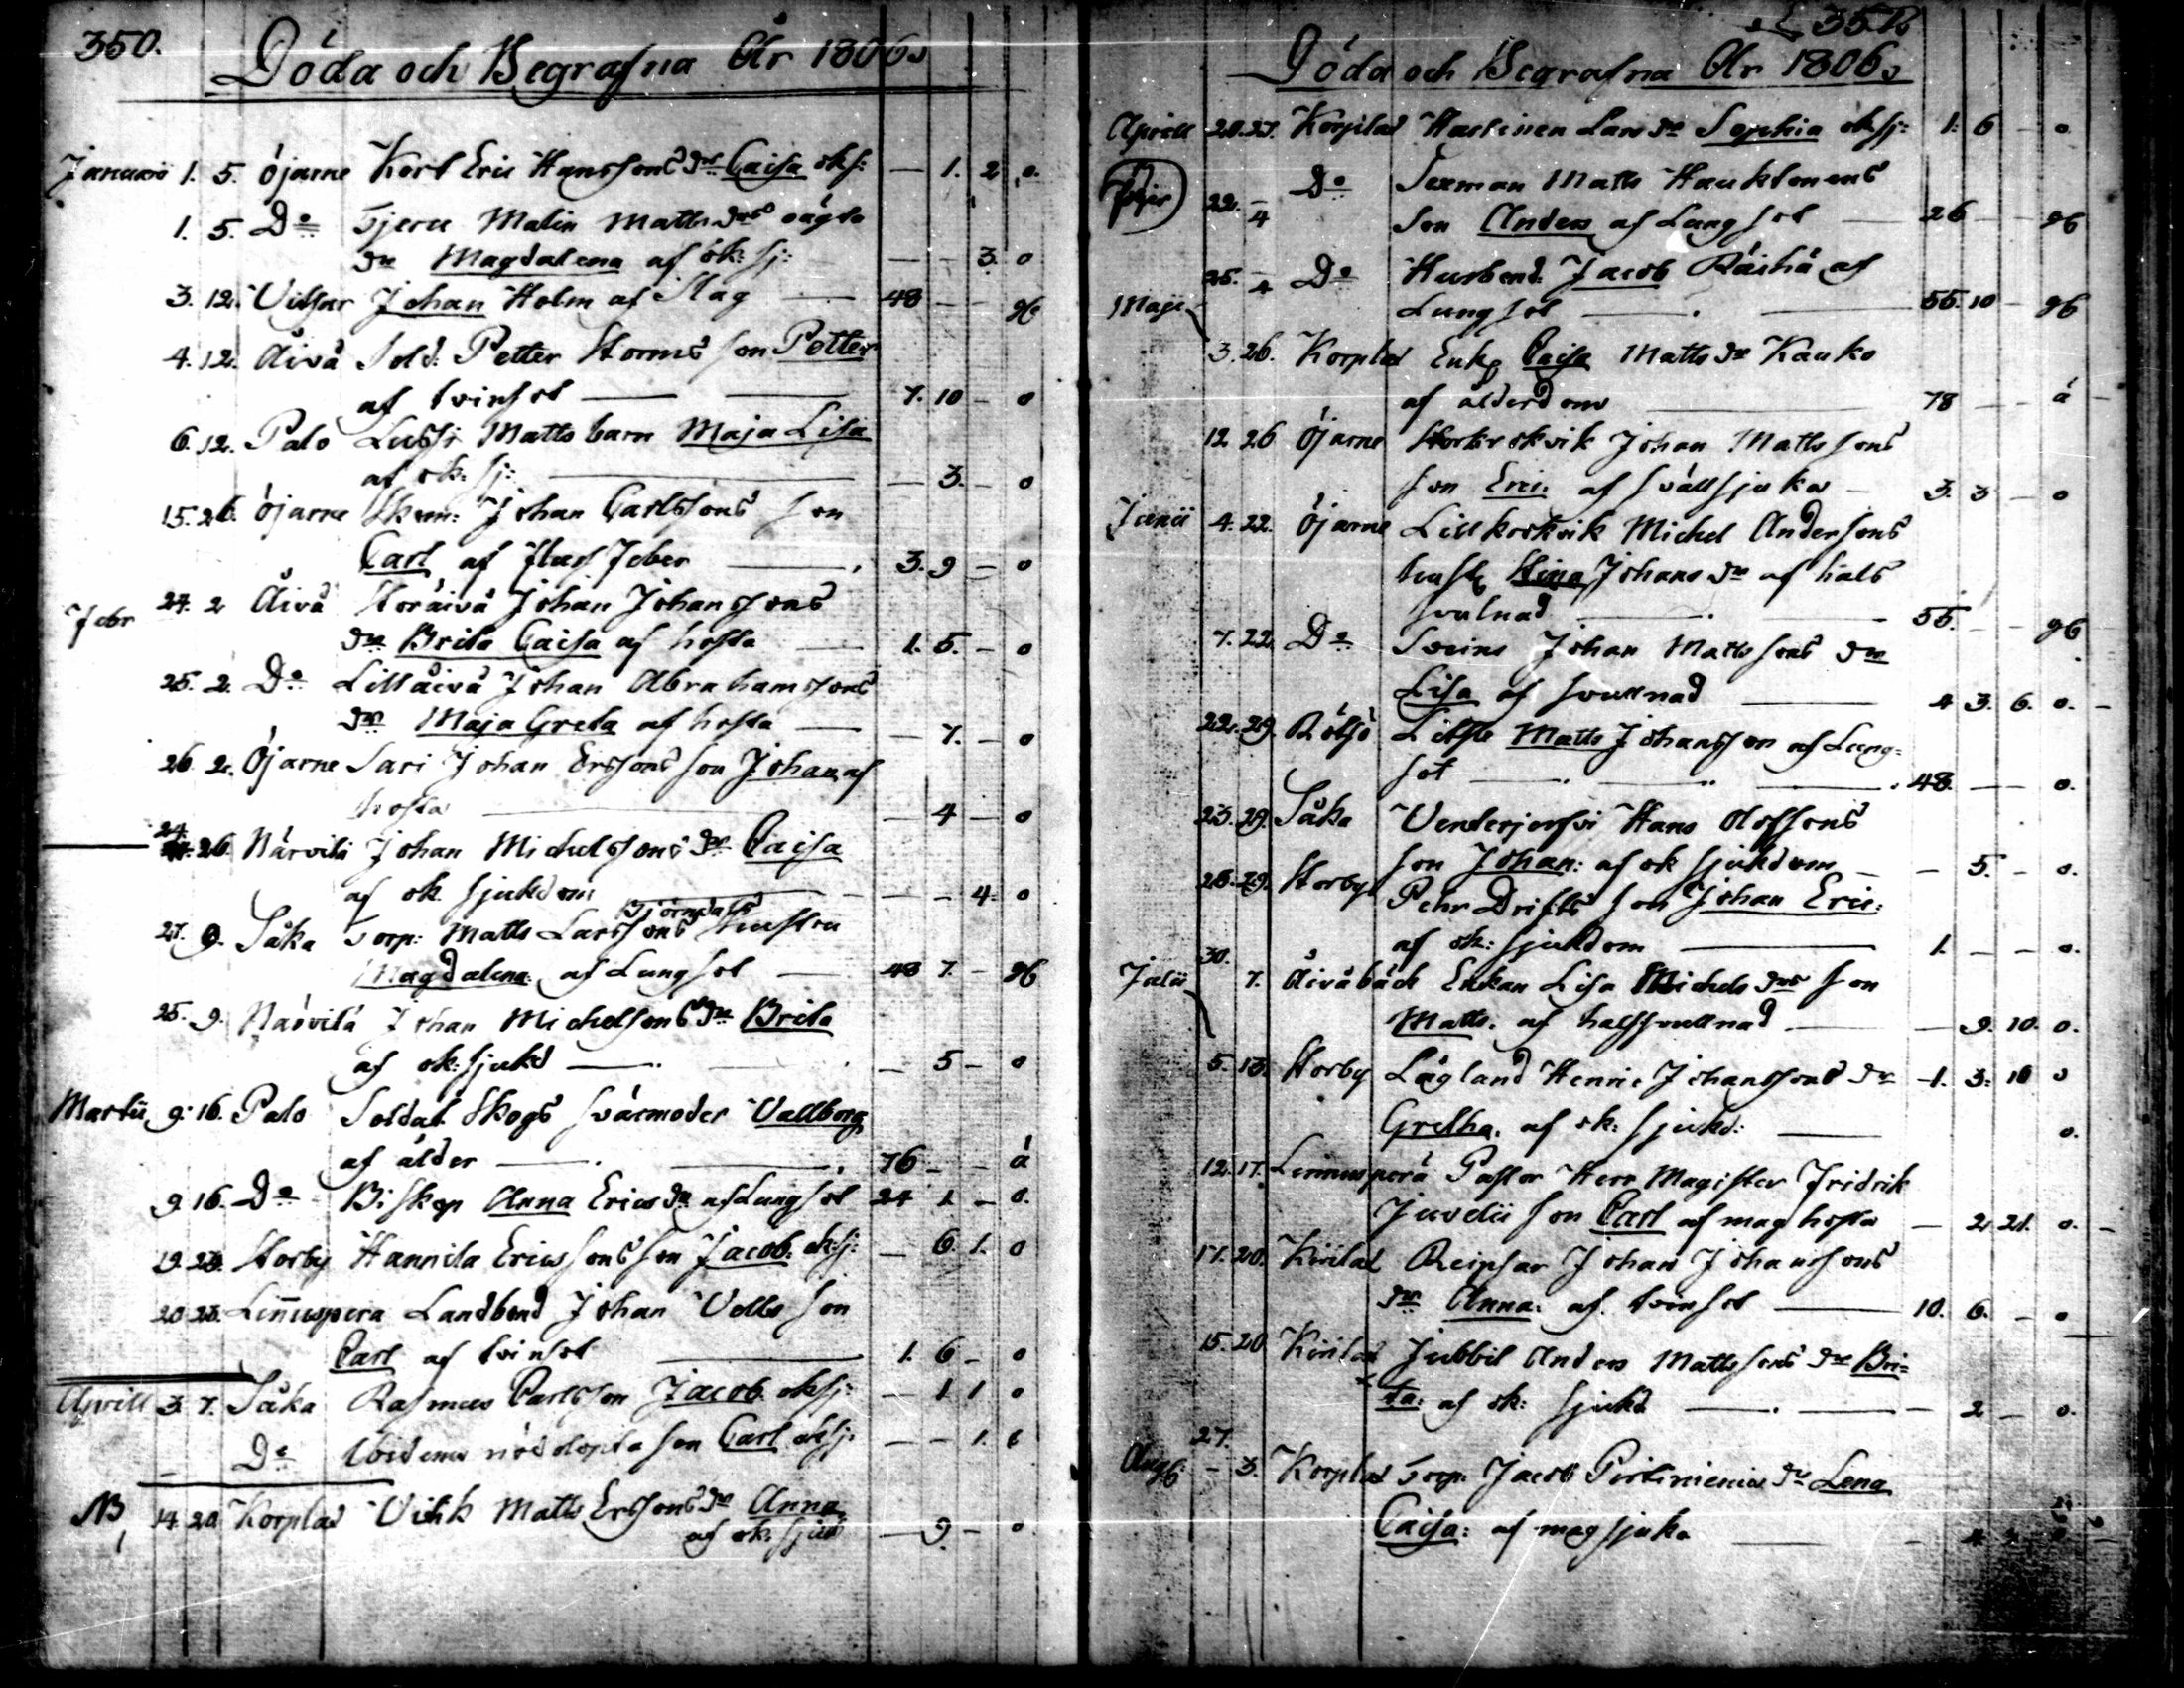 350.
Döda och Begrafna År 1806.
Januarii 1. 5. Öjarne Kort Eric Hanssons dr Caisa ok sj: — 1. 2 o.
1. 5. Do Fjeru Malin Matts drs oägta
dr Magdalena af ok: sj: — — 3. o
3. 12. Vitsar Johan Holm af slag — 48 — — gb
4. 12. Åivå Sold: Petter Storms son Petter
af tvinsot — 7. 10 — o
6. 12. Palo Lussi Matts barn Maja Lisa
af ok: sj: — — 3. — o
15. 26. Öjarne Skom: Johan Carlssons son
Carl af feber — 3. 9 — o
Febr 24. 2 Åivå Storåivå Johan Johanssons
dr Brita Caisa af hosta — 1. 5. — o
25. 2. Do Lillåivå Johan Abrahamssons
dr Maja Greta af hosta — — 7. — o
26. 2. Öjarne Sari Johan Erssons son Johan af
hosta — — 4 — o
24. 26. Närvilä Johan Michelssons dr Caisa
af ok. sjukdom — — — 4. o
Björndahls
27. 9. Såka Torp: Matts Larssons hustru
Magdalena. af Lungsot — 48 7. — gb
25. 9. Närvilä Johan Michelsons dr Brita
af ok: sjukd — — 5 — o
Martii 9. 16. Palo Soldat Skogs svärmoder Vallborg
af ålder — 76 — — å
9 16. Do Biskop Anna Erics dr af Lungsot 24 1 — o.
19. 23. Storby Hannila Ericssons son Jacob. ok: sj: — 6. 1. o
20 23. Linnuspera Landbond Johan son
Carl af tvinsot — 1. 6 — o
Aprill 3. 7. Såka Rasmus Carlsson Jacob ok sj: — 1 1 o
— Do nöddöpta son Carl ok sj: — — 1.
NB 14. 20 Korplax Vitik Matts Erssons dr Anna.
af ok. sjuk — 9. — o
Döda och Begrafna År 1806.
Aprill 20. 27. Korplax Hastinen Lars dr Sophia ok sj: 1: 6 — o.
22. — 4 Do Sexman Matts Hauktonens
son Anders af Lungsot — 26 — — gb
Maji 25. — 4 Do Husbond: Jacob Räihä af
Lungsot — 55. 10 — gb
3. 26. Korplax Enk. Caisa Matts dr Kauko
af ålderdom — 78 — — å
12 26 Öjarne Storkorskvik Johan Mattssons
son Eric. af svällsjuka — 3. 3 — o
Junii 4. 22. Öjarne Lillkorskvik Michel Andersons
hust. Stina Johans dr af hals
svulnad — 55. — — gb
7. 22 Do Svens Johan Mattssons dr
Lisa af svullnad — 4 3. 6. o.
22. 29. Rödsö Matts Johansson af Lung-
sot — 48. — — o.
23. 29. Såka Venterjerfvi Hans Olofsons
son Johan: af ok sjukdom — — 5. — o.
26. 29. Storby Pehr Drifts son Johan Eric:
af ok: sjukdom — 1. — — o.
Julii 30. 7. Åivåbäck Enkan Lisa Michels drs son
Matts. af halssvullnad — — 9. 10. o.
5. 13. Storby Lågland Henric Johanssons dr 1. 3: 10 o
Gretha. af ok: sjukd: — o.
12. 17. Linnuspera Pastor Herr Magister Fridrik
Juvelii son Carl af mag hosta — 2 21. o.
17. 20. Kivilax Reipsar Johan Johanssons
dr Anna. af tvinsot — 10. 6. — o
15. 20 Kivilax Jubbil Anders Mattssons dr Bri-
ta: af ok: sjukd — — 2 — o.
27.
Aug — 3. Korplax Torp: Jacob Pirtiniemis dr Lena
Caisa: af magsjuka —